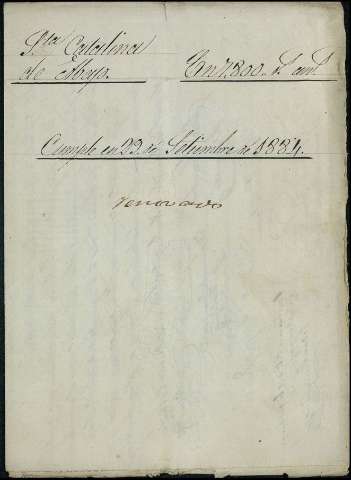 Sta Catalina
de Abajo. En 7,800. Rs anl.
Cumple en 23 de Setiembre de 1884.
renovado